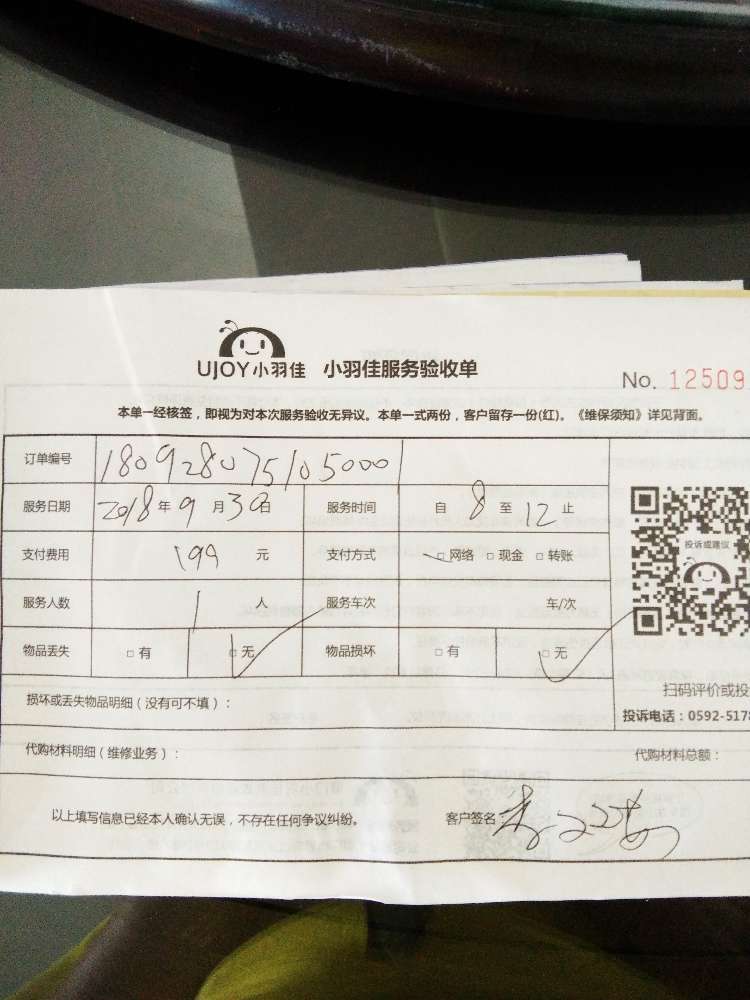 UJOY小羽佳 小羽佳服务验收单
No. 12509
本单一经核签，即视为对本次服务验收无异议。本单一式两份，客户留存一份(红)。《维保须知》详见背面。
订单编号 180928075105000
服务日期 2018年9月30日 服务时间 自8至12止
支付费用 199元 支付方式 □网络 □现金 □转账
服务人数 1人 服务车次 车/次
物品丢失 □有 □无 物品损坏 □有 □无
投诉或建议
扫码评价或投
损坏或丢失物品明细（没有可不填）：
投诉电话：0592-5178
代购材料明细（维修业务）： 代购材料总额：
以上填写信息已经本人确认无误，不存在任何争议纠纷。 客户签名：